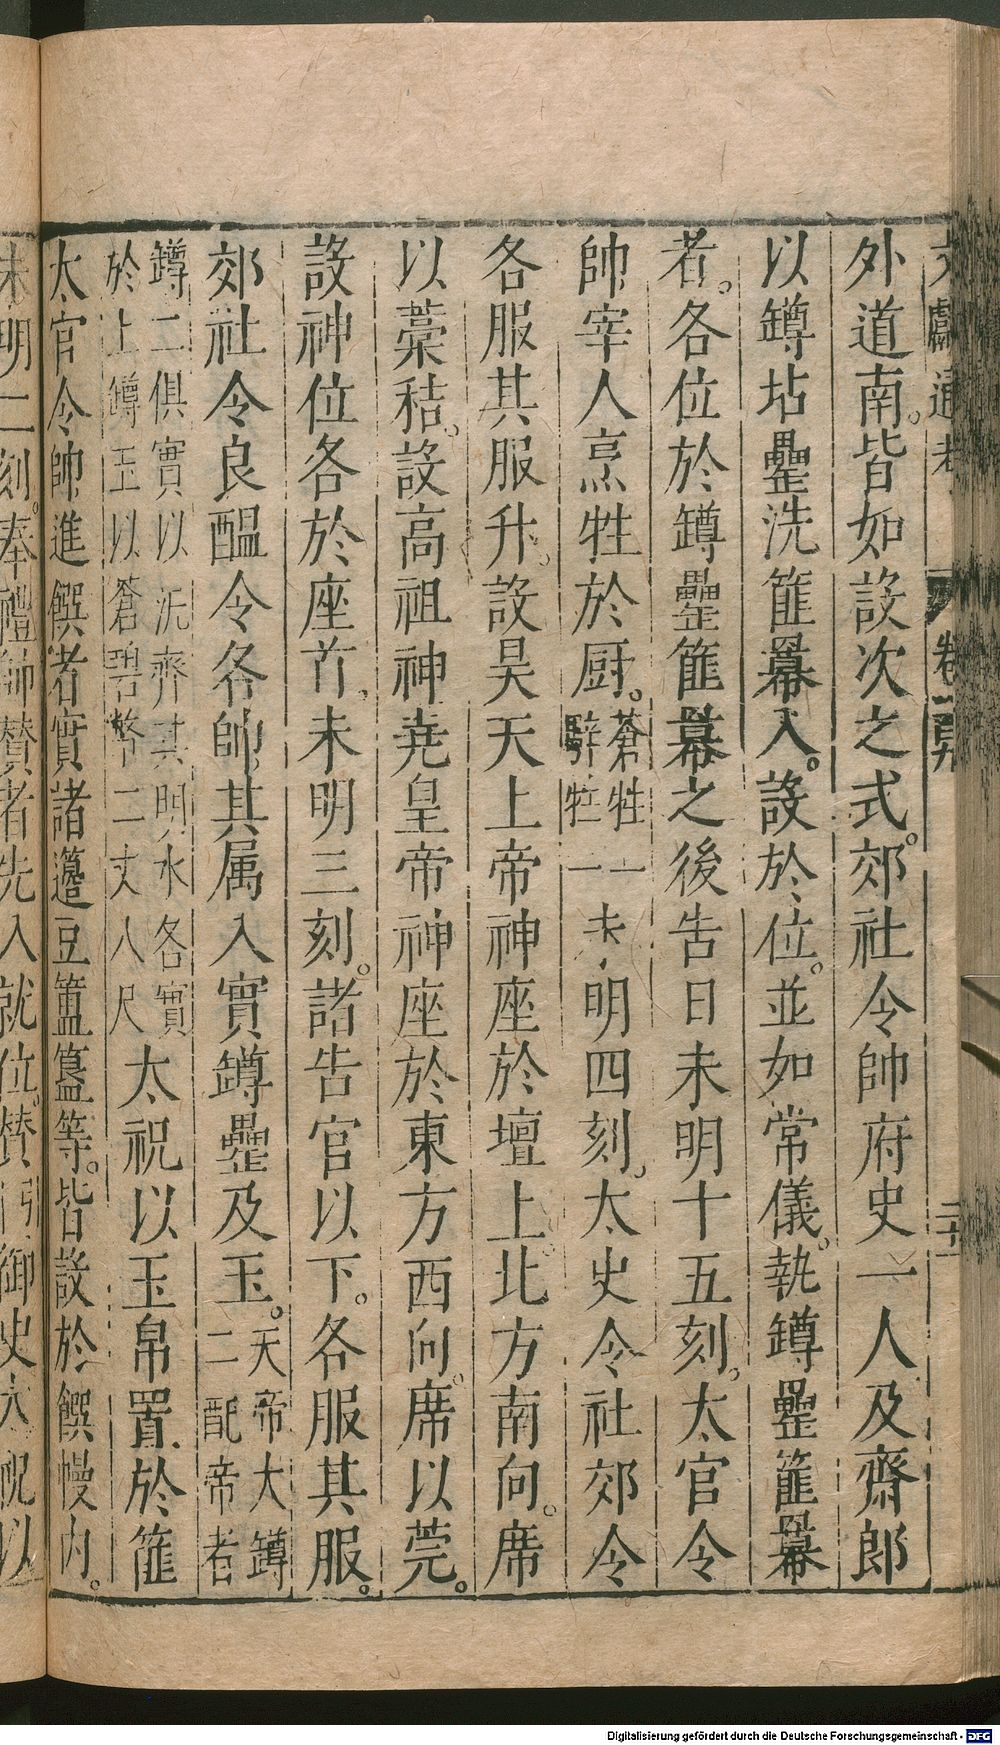 外道南。皆如設次之式。郊社令帥府史一人及齋郎
以罇坫罍洗篚羃入。設於位。並如常儀。執罇罍篚羃
者。各位於罇罍篚幕之後告日未明十五刻。太官令
帥宰人烹牲於厨。蒼牲一騂牲一未明四刻。太史令社郊令
各服其服升。設昊天上帝神座於壇上。北方南向。席
以藁秸。設高祖神堯皇帝神座於東方西向。席以莞。
設神位各於座首。未明三刻。諸告官以下。各服其服。
郊社令良醞令各帥其属入實罇罍及玉。天帝大罇二配帝者
罇二俱實以汎齊其明水各實於上罇玉以蒼碧幣二丈八尺太祝以玉帛置於篚
太官令帥進饌者實諸籩豆簠簋等。皆設於饌幔内。
未明二刻。奉禮帥贊者先入就位。贊引御史太祝以
文獻通考
卷
Digitalisierung gefördert durch die Deutsche Forschungsgemeinschaft - DFG